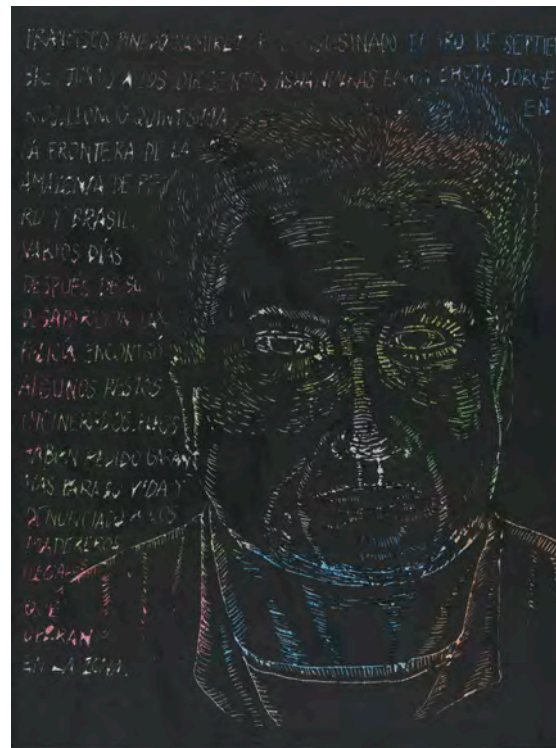 FRANCISCO PINEDO RAMIREZ ASESINADO EL 1RO DE SEPTIE
JUNTO A LOS DIRIGENTES ASHANINKAS EDWIN CHOTA, JORGE
LEONCIO QUINTISIMA EN
LA FRONTERA DE LA
AMAZONIA DE PE
RU Y BRASIL.
VARIOS DÍAS
DESPUES DE SU
DESAPARICIÓN LA
POLICÍA ENCONTRÓ
ALGUNOS RESTOS
INCINERADOS. ELLOS
HABIAN PEDIDO GARAN
TIAS PARA SU VIDA Y
DENUNCIADO A LOS
MADEREROS
ILEGALES
QUE
OPERAN
EN LA ZONA.